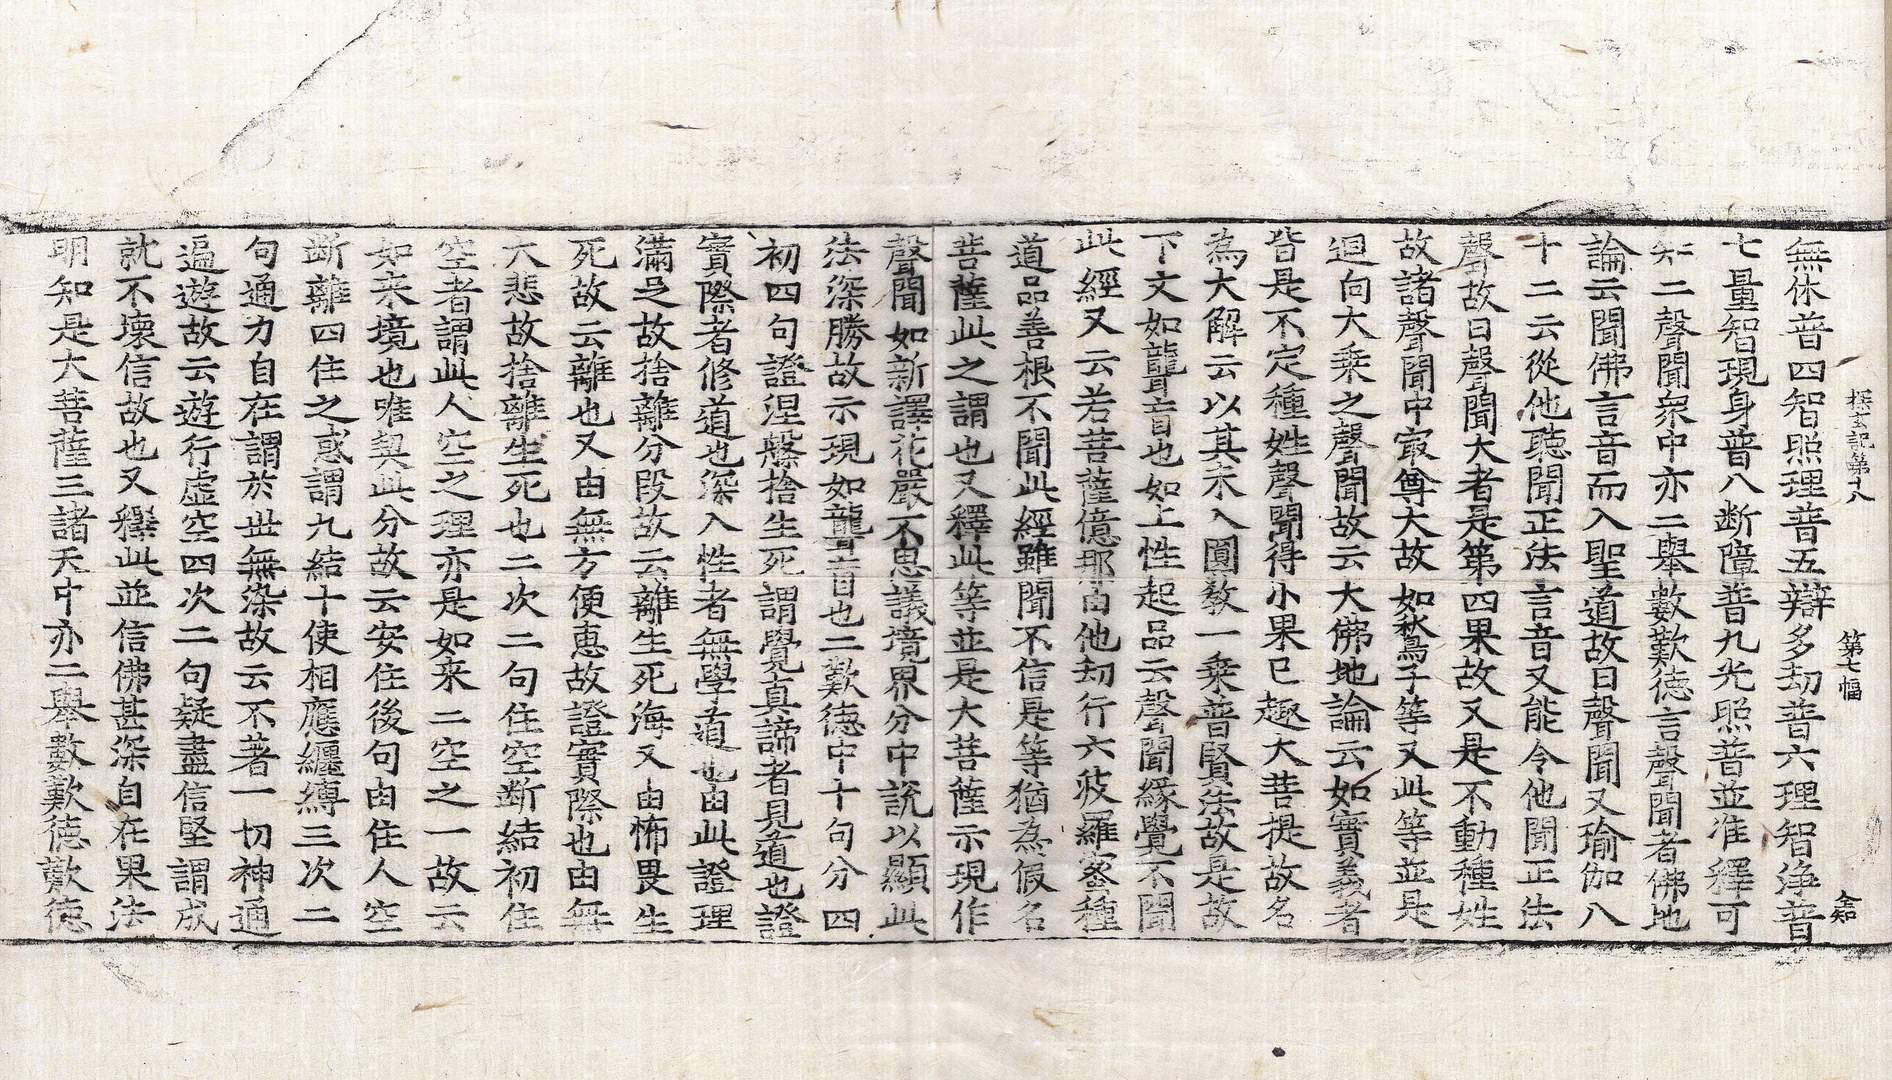 探玄記第十八 第七幅 全知
無休普四智照理普五辯多劫普六理智淨普
七量智現身普八断障普九光照普並准釋可
知二聲聞衆中亦二舉數歎德言聲聞者佛地
論云聞佛言音而入聖道故曰聲聞又瑜伽八
十二云從他聴聞正法言音又能令他聞正法
聲故曰聲聞大者是第四果故又是不動種姓
故諸聲聞中㝡尊大故如鶖子等又此等並是
迴向大乗之聲聞故云大佛地論云如實義者
皆是不定種姓聲聞得小果已趣大菩提故名
為大解云以其未入圓教一乗普賢法故是故
下文如聾盲也如上性起品云聲聞緣覺不聞
此經又云若菩薩億那由他劫行六波羅蜜種
道品善根不聞此經雖聞不信是等猶為假名
菩薩此之謂也又釋此等並是大菩薩示現作
聲聞如新譯花嚴不思議境界分中說以顯此
法深勝故示現如聾盲也二歎德中十句分四
初四句證涅槃捨生死謂覺真諦者見道也證
實際者修道也深入性者無學道也由此證理
滿足故捨離分段故云離生死海又由怖畏生
死故云離也又由無方便恵故證實際也由無
大悲故捨離生死也二次二句住空断結初住
空者謂此人空之理亦是如来二空之一故云
如来境也唯契此分故云安住後句由住人空
断離四住之惑謂九結十使相應纒縛三次二
句通力自在謂於世無染故云不著一切神通
遍遊故云遊行虚空四次二句疑盡信堅謂成
就不壊信故也又釋此並信佛甚深自在果法
明知是大菩薩三諸天中亦二舉數歎德歎德